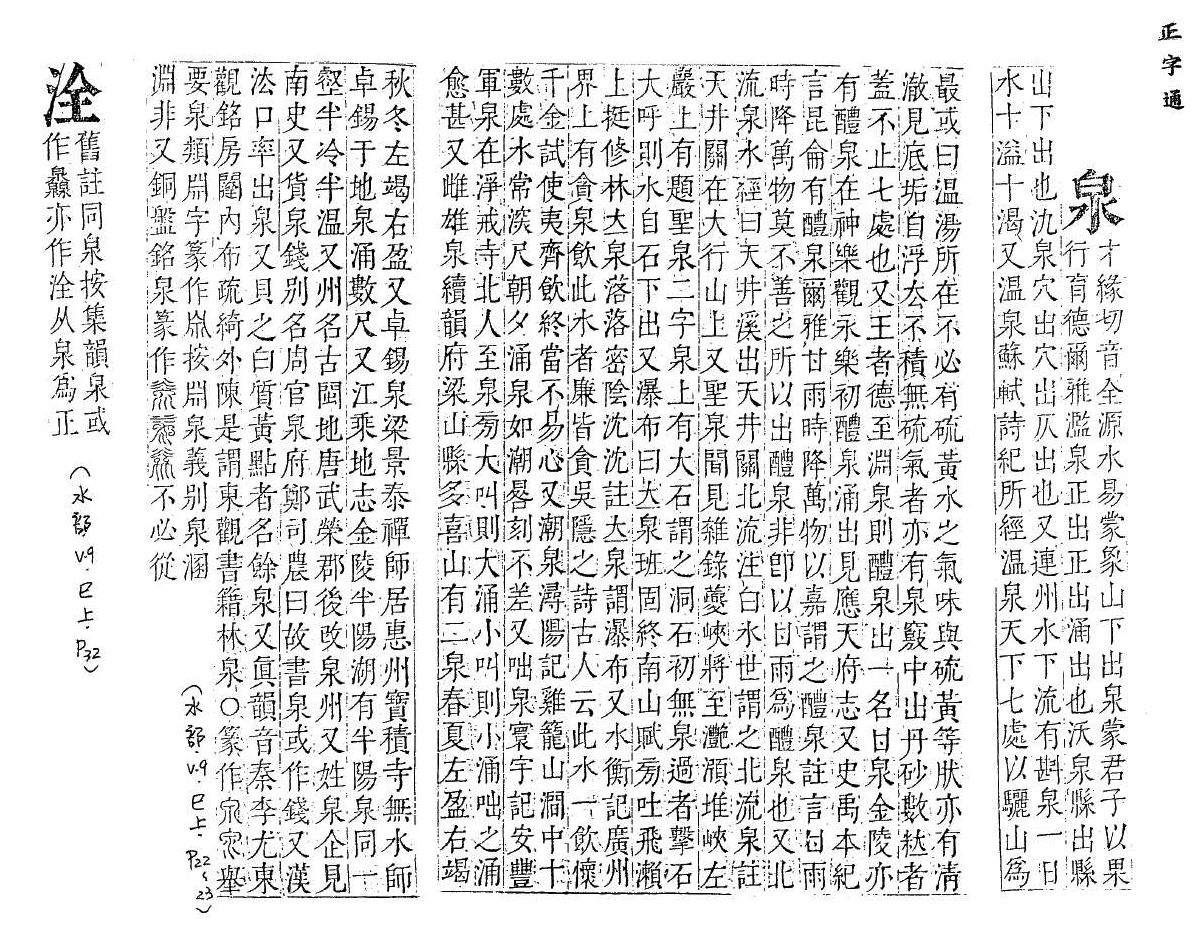 正字通
泉
才緣切音全源水易蒙象山下出泉蒙君子以果
行育德爾雅濫泉正出正出涌出也沃泉縣出縣
出下出也氿泉穴出穴出仄出也又連州水下流有斟泉一日
水十溢十渴又溫泉蘇軾詩紀所經溫泉天下七處以驪山為
最或曰溫湯所在不必有硫黃水之氣味與硫黃等狀亦有淸
澈見底垢自浮去不積無硫氣者亦有泉竅中出丹砂數粒者
蓋不止七處也又王者德至淵泉則醴泉出一名甘泉金陵亦
有醴泉在神樂觀永樂初醴泉涌出見應天府志又史禹本紀
言昆侖有醴泉爾雅甘雨時降萬物以嘉謂之醴泉註言甘雨
時降萬物莫不善之所以出醴泉非卽以甘雨爲醴泉也又北
流泉水經曰天井溪出天井關北流注白水世謂之北流泉註
天井關在大行山上又聖泉聞見雜錄夔峽將至灔澦堆峽左
巖上有題聖泉二字泉上有大石謂之洞石初無泉過者擊石
大呼則水自石下出又瀑布曰立泉班固終南山賦旁吐飛瀨
上挺修林立泉落落密陰沈沈註立泉謂瀑布又水衡記廣州
界上有貪泉飲此水者廉皆貪吳隱之詩古人云此水一飲懷
千金試使夷齊飲終當不易心又潮泉潯陽記雞籠山澗中十
數處水常深尺朝夕涌泉如潮晷刻不差又咄泉寰宇記安豐
軍泉在淨戒寺北人至泉旁大叫則大涌小叫則小涌咄之涌
愈甚又雌雄泉續韻府梁山縣多喜山有二泉春夏左盈右竭
秋冬左竭右盈又卓錫泉梁景泰禪師居惠州寶積寺無水師
卓錫于地泉涌數尺又江乘地志金陵半陽湖有半陽泉同一
壑半冷半溫又州名古閩地唐武榮郡後改泉州又姓泉企見
南史又貨泉錢别名周官泉府鄭司農曰故書泉或作錢又漢
㳒口率出泉又貝之白質黃點者名餘泉又眞韻音秦李尤東
觀銘房闥內布疏綺外陳是謂東觀書籍林泉○篆作舉
要泉類淵字篆作按淵泉義别泉溷
淵非又銅盤銘泉篆作不必從
(水部 v.9. 巳上. P22~23)
洤
舊註同泉按集韻泉或
作灥亦作洤从泉爲正
(水部 v.9. 巳上. P32)